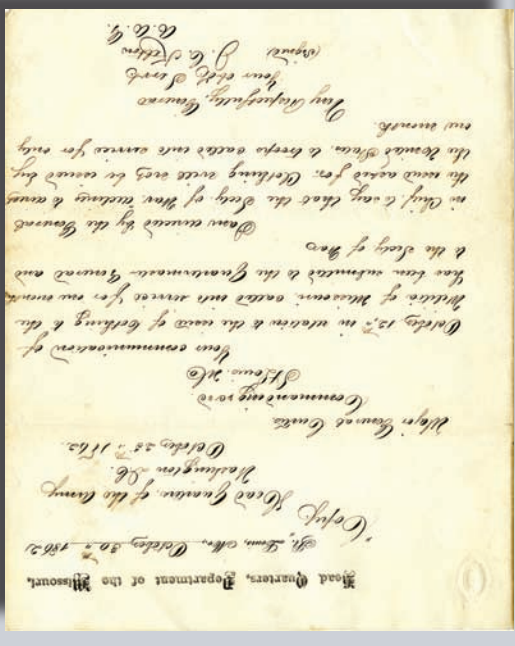 Head Quarters, Department of the Missouri,
St. Louis, Mo., October 30th 1862
"Copy"
Head Quarters of the Army
Washington D.C.
October 25th 1862.
Major General Curtis
Commanding
St Louis Mo
Your communication of
October 13th in relation to the issue of Clothing to the
Militia of Missouri called into service for one month
has been submitted to the Quartermaster General and
to the Secty of War
I am directed by the General
in Chief to say that the Secty of War declines to allow
the issue asked for. Clothing will only be issued by
the United States to troops called into service for only
one month.
Very Respectfully, General
Your obt Servt
(signed) J. C. Kelton
A. A. G.